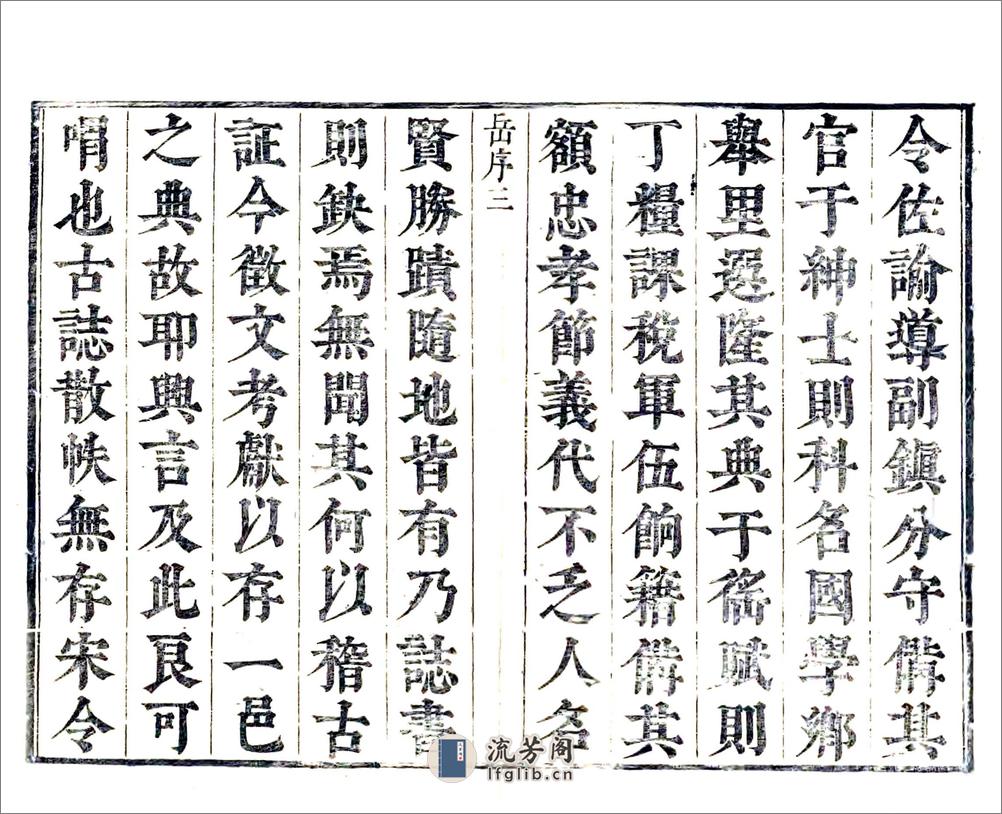 令佐諭導副鎮分守備其
官于紳士則科名國學鄉
舉里選隆其典于徭賦則
丁糧課稅軍伍餉籍備其
額忠孝節義代不乏人名
岳序三
賢勝蹟隨地皆有乃誌書
則缺焉無聞其何以稽古
証今徵文考獻以存一邑
之典故耶興言及此良可
喟也古誌散帙無存宋令
流芳阁
lfglib.cn